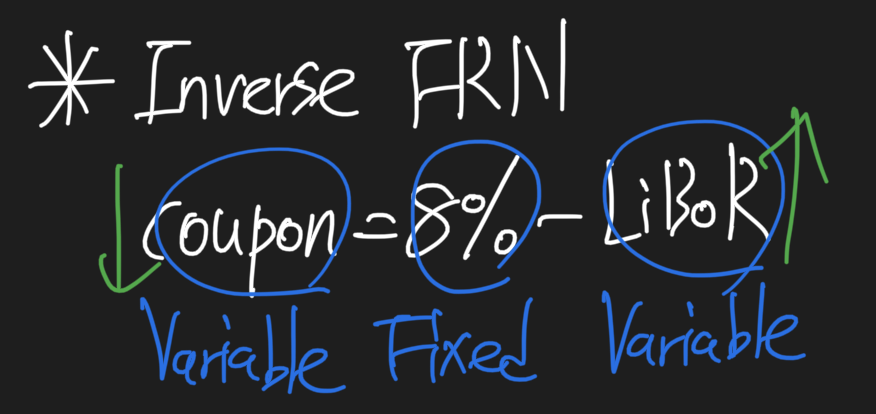 * Inverse FRN
Coupon = 8% - LiBoR
Variable Fixed Variable